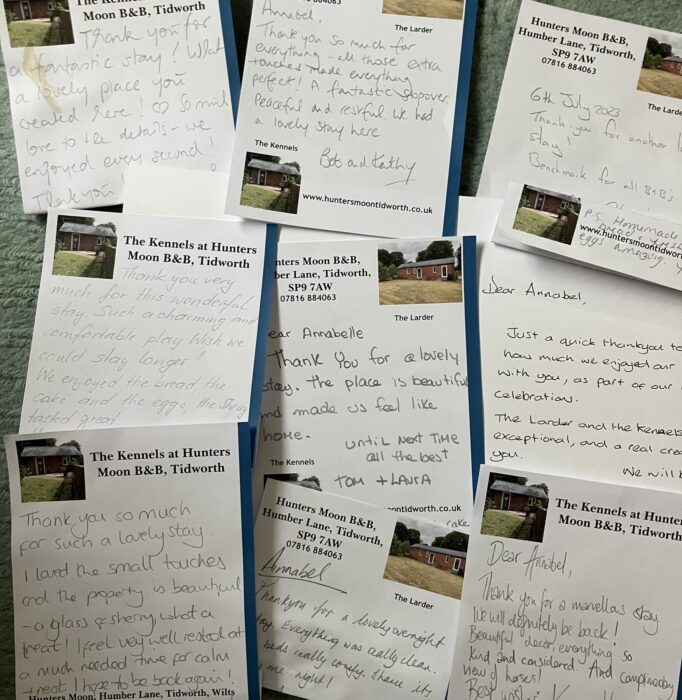 The Kennels
Moon B&B, Tidworth
Thank you for
a fantastic stay! What
a lovely place you
created here! ♡ So much
love to the details - we
enjoyed every second!
Thank you!
Annabel,
07816 884063
The Larder
Thank you so much for
everything - all those extra
touches made everything
perfect! A fantastic stopover.
Peaceful and restful. We had
a lovely stay here
Bob and Kathy
The Kennels
www.huntersmoontidworth.co.uk
Hunters Moon B&B,
Humber Lane, Tidworth,
SP9 7AW
07816 884063
The Larde
6th July 2023
Thank-you for another
stay!
Benchmark for all B&B's
P.S. Homemade
www.huntersmoontidwor
eggs amazing.
The Kennels at Hunters
Moon B&B, Tidworth
Thank you very
much for this wonderful
stay Such a charming and
comfortable play Wish we
could stay longer!
We enjoyed the bread, the
cake and the eggs, the sherry
tasted great
nters Moon B&B,
ber Lane, Tidworth,
SP9 7AW
07816 884063
The Larder
ear Annabelle
Thank You for a lovely
stay. the place is beautiful
and made us feel like
home.
until next time
all the best
Tom + LAURA
The Kennels
ntontidworth.co.uk
cake
Dear Annabel,
Just a quick thankyou to
how much we enjoyed our
with you, as part of our
celebrations.
The Larder and the Kennels
exceptional, and a real cre
you.
We will b
The Kennels at Hunters
Moon B&B, Tidworth
Thank you so much
for such a lovely stay.
I loved the small touches
and the property is beautiful
- a glass of sherry, what a
treat! I feel very well rested at
a much needed time for calm
+ rest. I hope to be back again!
Hunters Moon, Humber Lane, Tidworth, Wilts
Hunters Moon B&B,
Humber Lane, Tidworth,
SP9 7AW
07816 884063
The Larder
Annabel
Thankyou for a lovely overnight
stay. Everything was really clean.
beds really comfy. Shame its
one night!
The Kennels at Hunter
Moon B&B, Tidworth
Dear Annabel,
Thank you for a marvellous stay
We will definitely be back!
Beautiful decor, everything so
kind and considered. And complimentary
view of horses!
Best